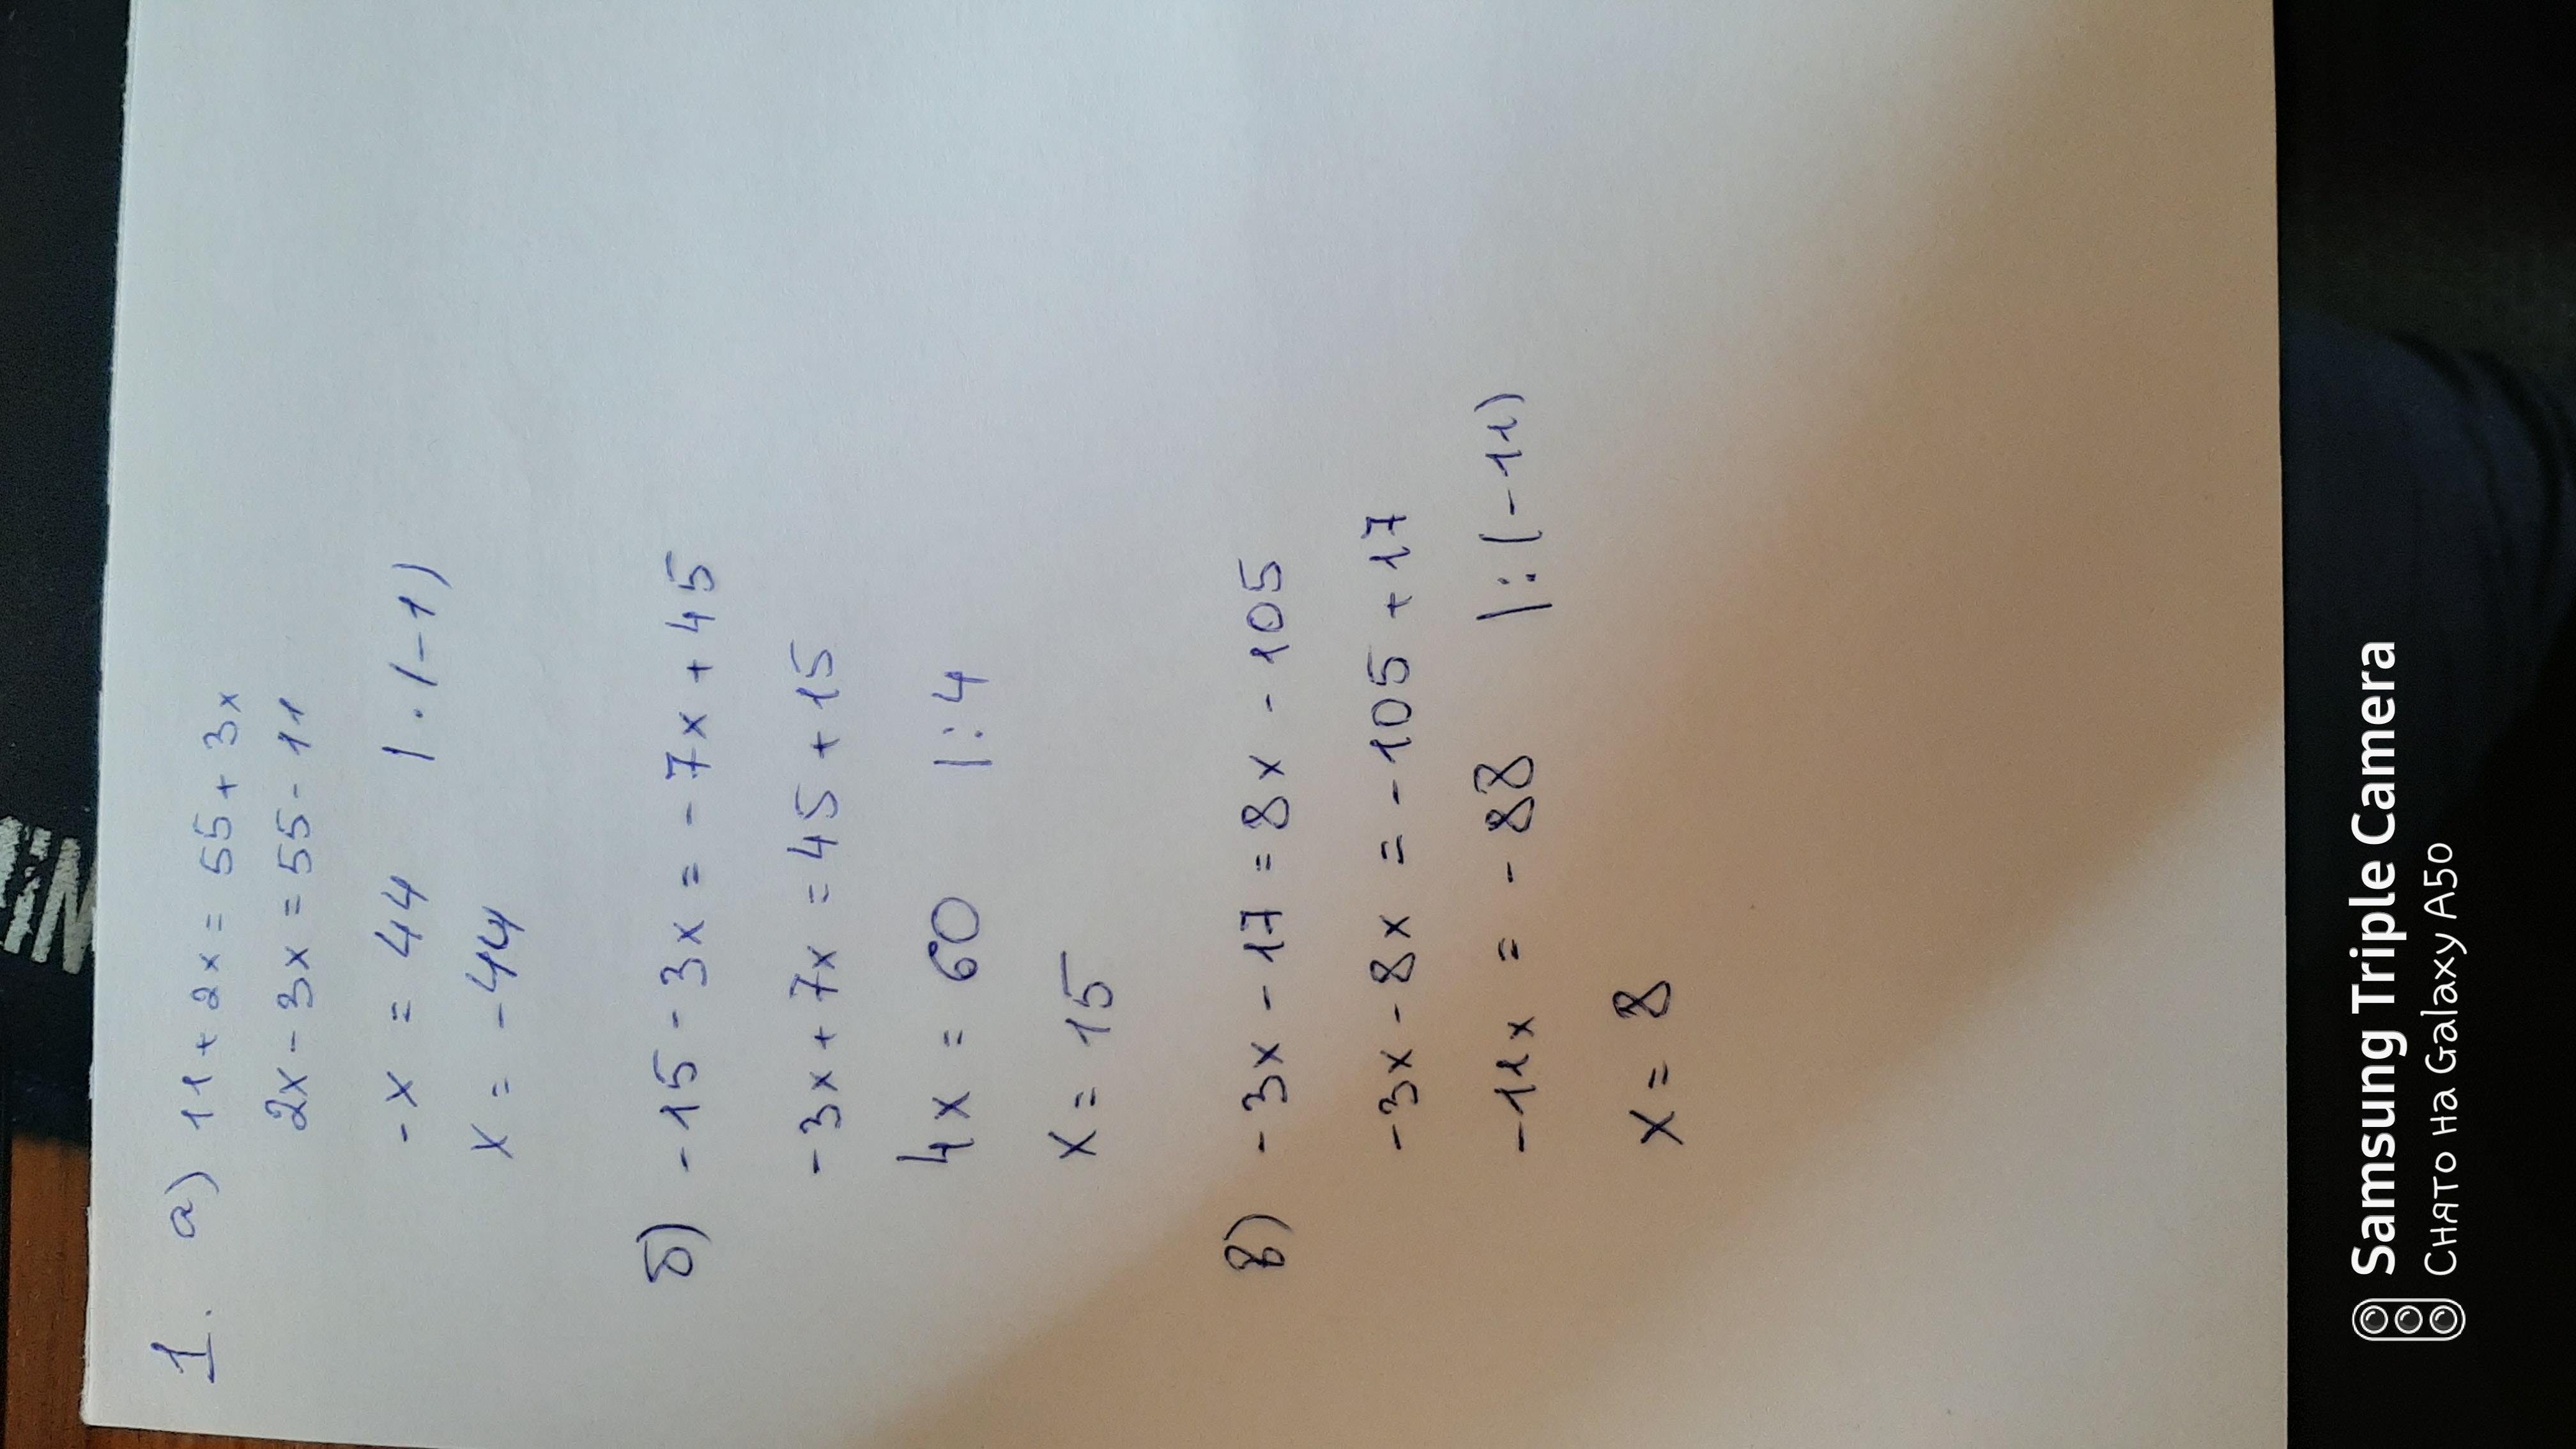 1. а) 11 + 2x = 55 + 3x
2x - 3x = 55 - 11
-x = 44 | · (-1)
x = -44
б) -15 - 3x = -7x + 45
-3x + 7x = 45 + 15
4x = 60 |:4
x = 15
в) -3x - 17 = 8x - 105
-3x - 8x = -105 + 17
-11x = -88 |:(-11)
x = 8
Samsung Triple Camera
Снято на Galaxy A50